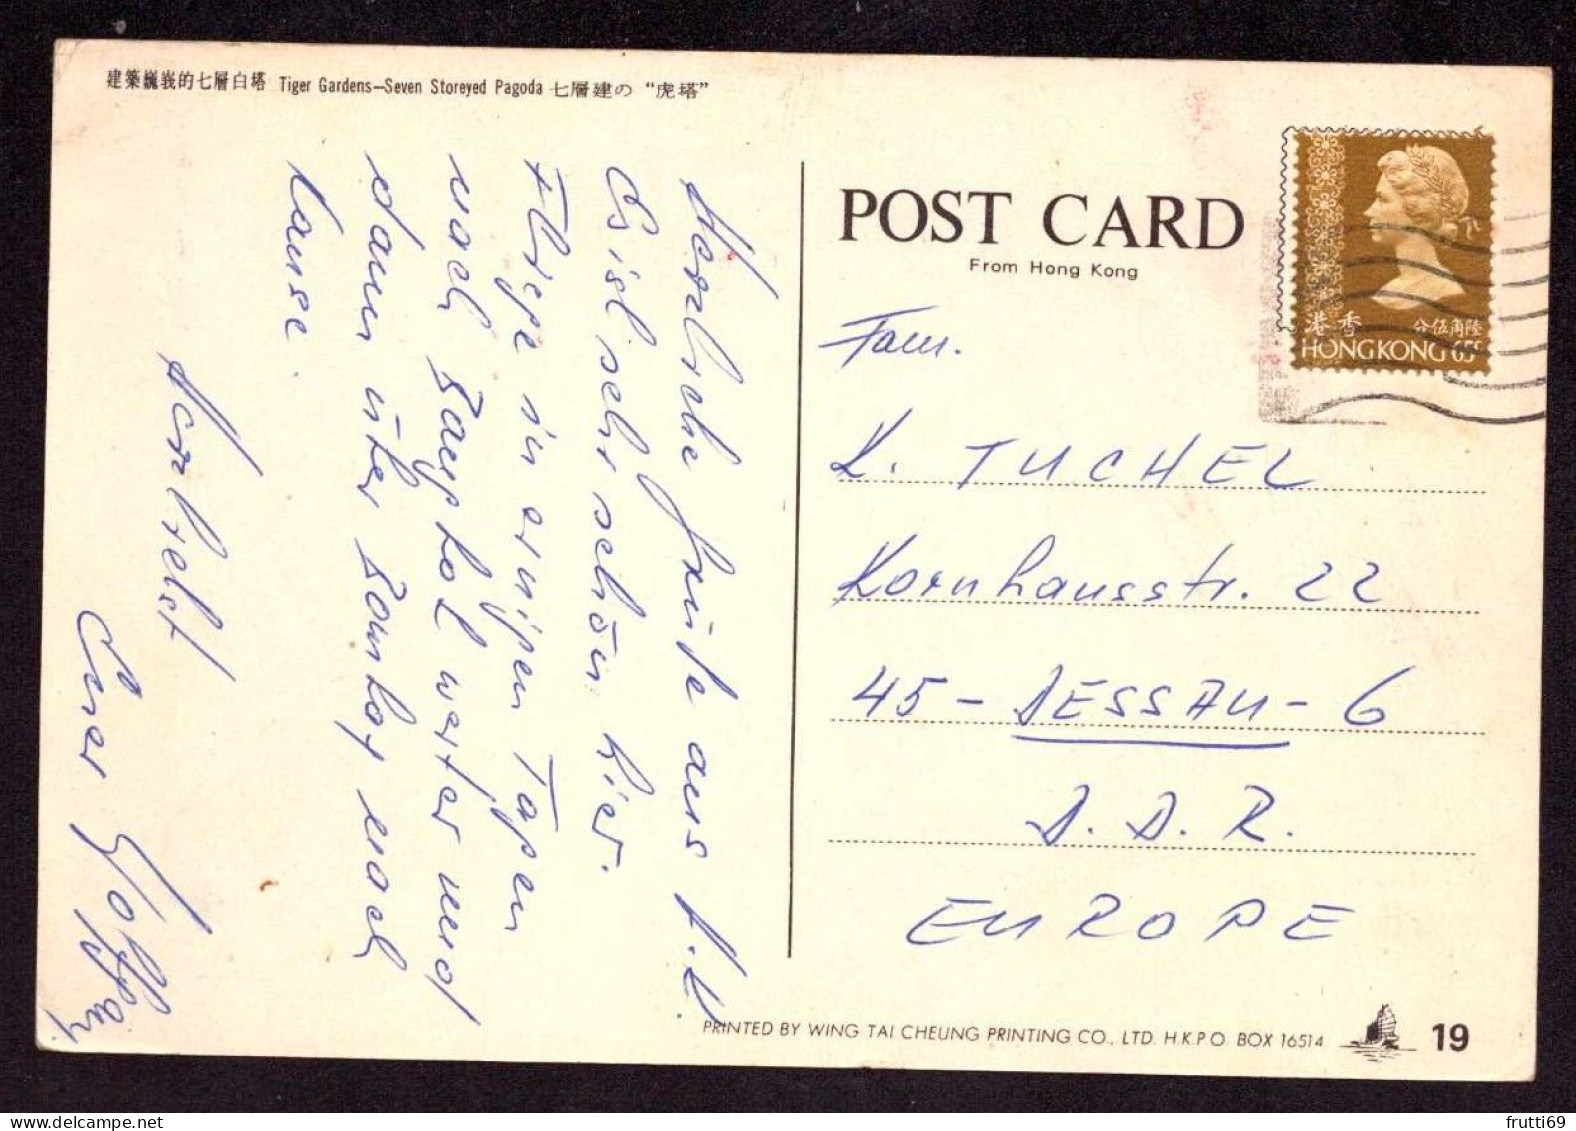 建築巍峩的七層白塔 Tiger Gardens—Seven Storeyed Pagoda 七層建の “虎塔”
Herzliche Grüße aus H.K.
Es ist sehr schön hier.
Fliege in einigen Tagen
nach Bangkok weiter und
dann über Bombay nach
Hause.
Herzlichst
Euer
POST CARD
From Hong Kong
香港
陸角伍分
HONG KONG 65c
Fam.
K. TUCHEL
Kornhausstr. 22
45 - DESSAU - 6
D. D. R.
EUROPE
PRINTED BY WING TAI CHEUNG PRINTING CO., LTD. H.K.P.O. BOX 16514
19
frutti69